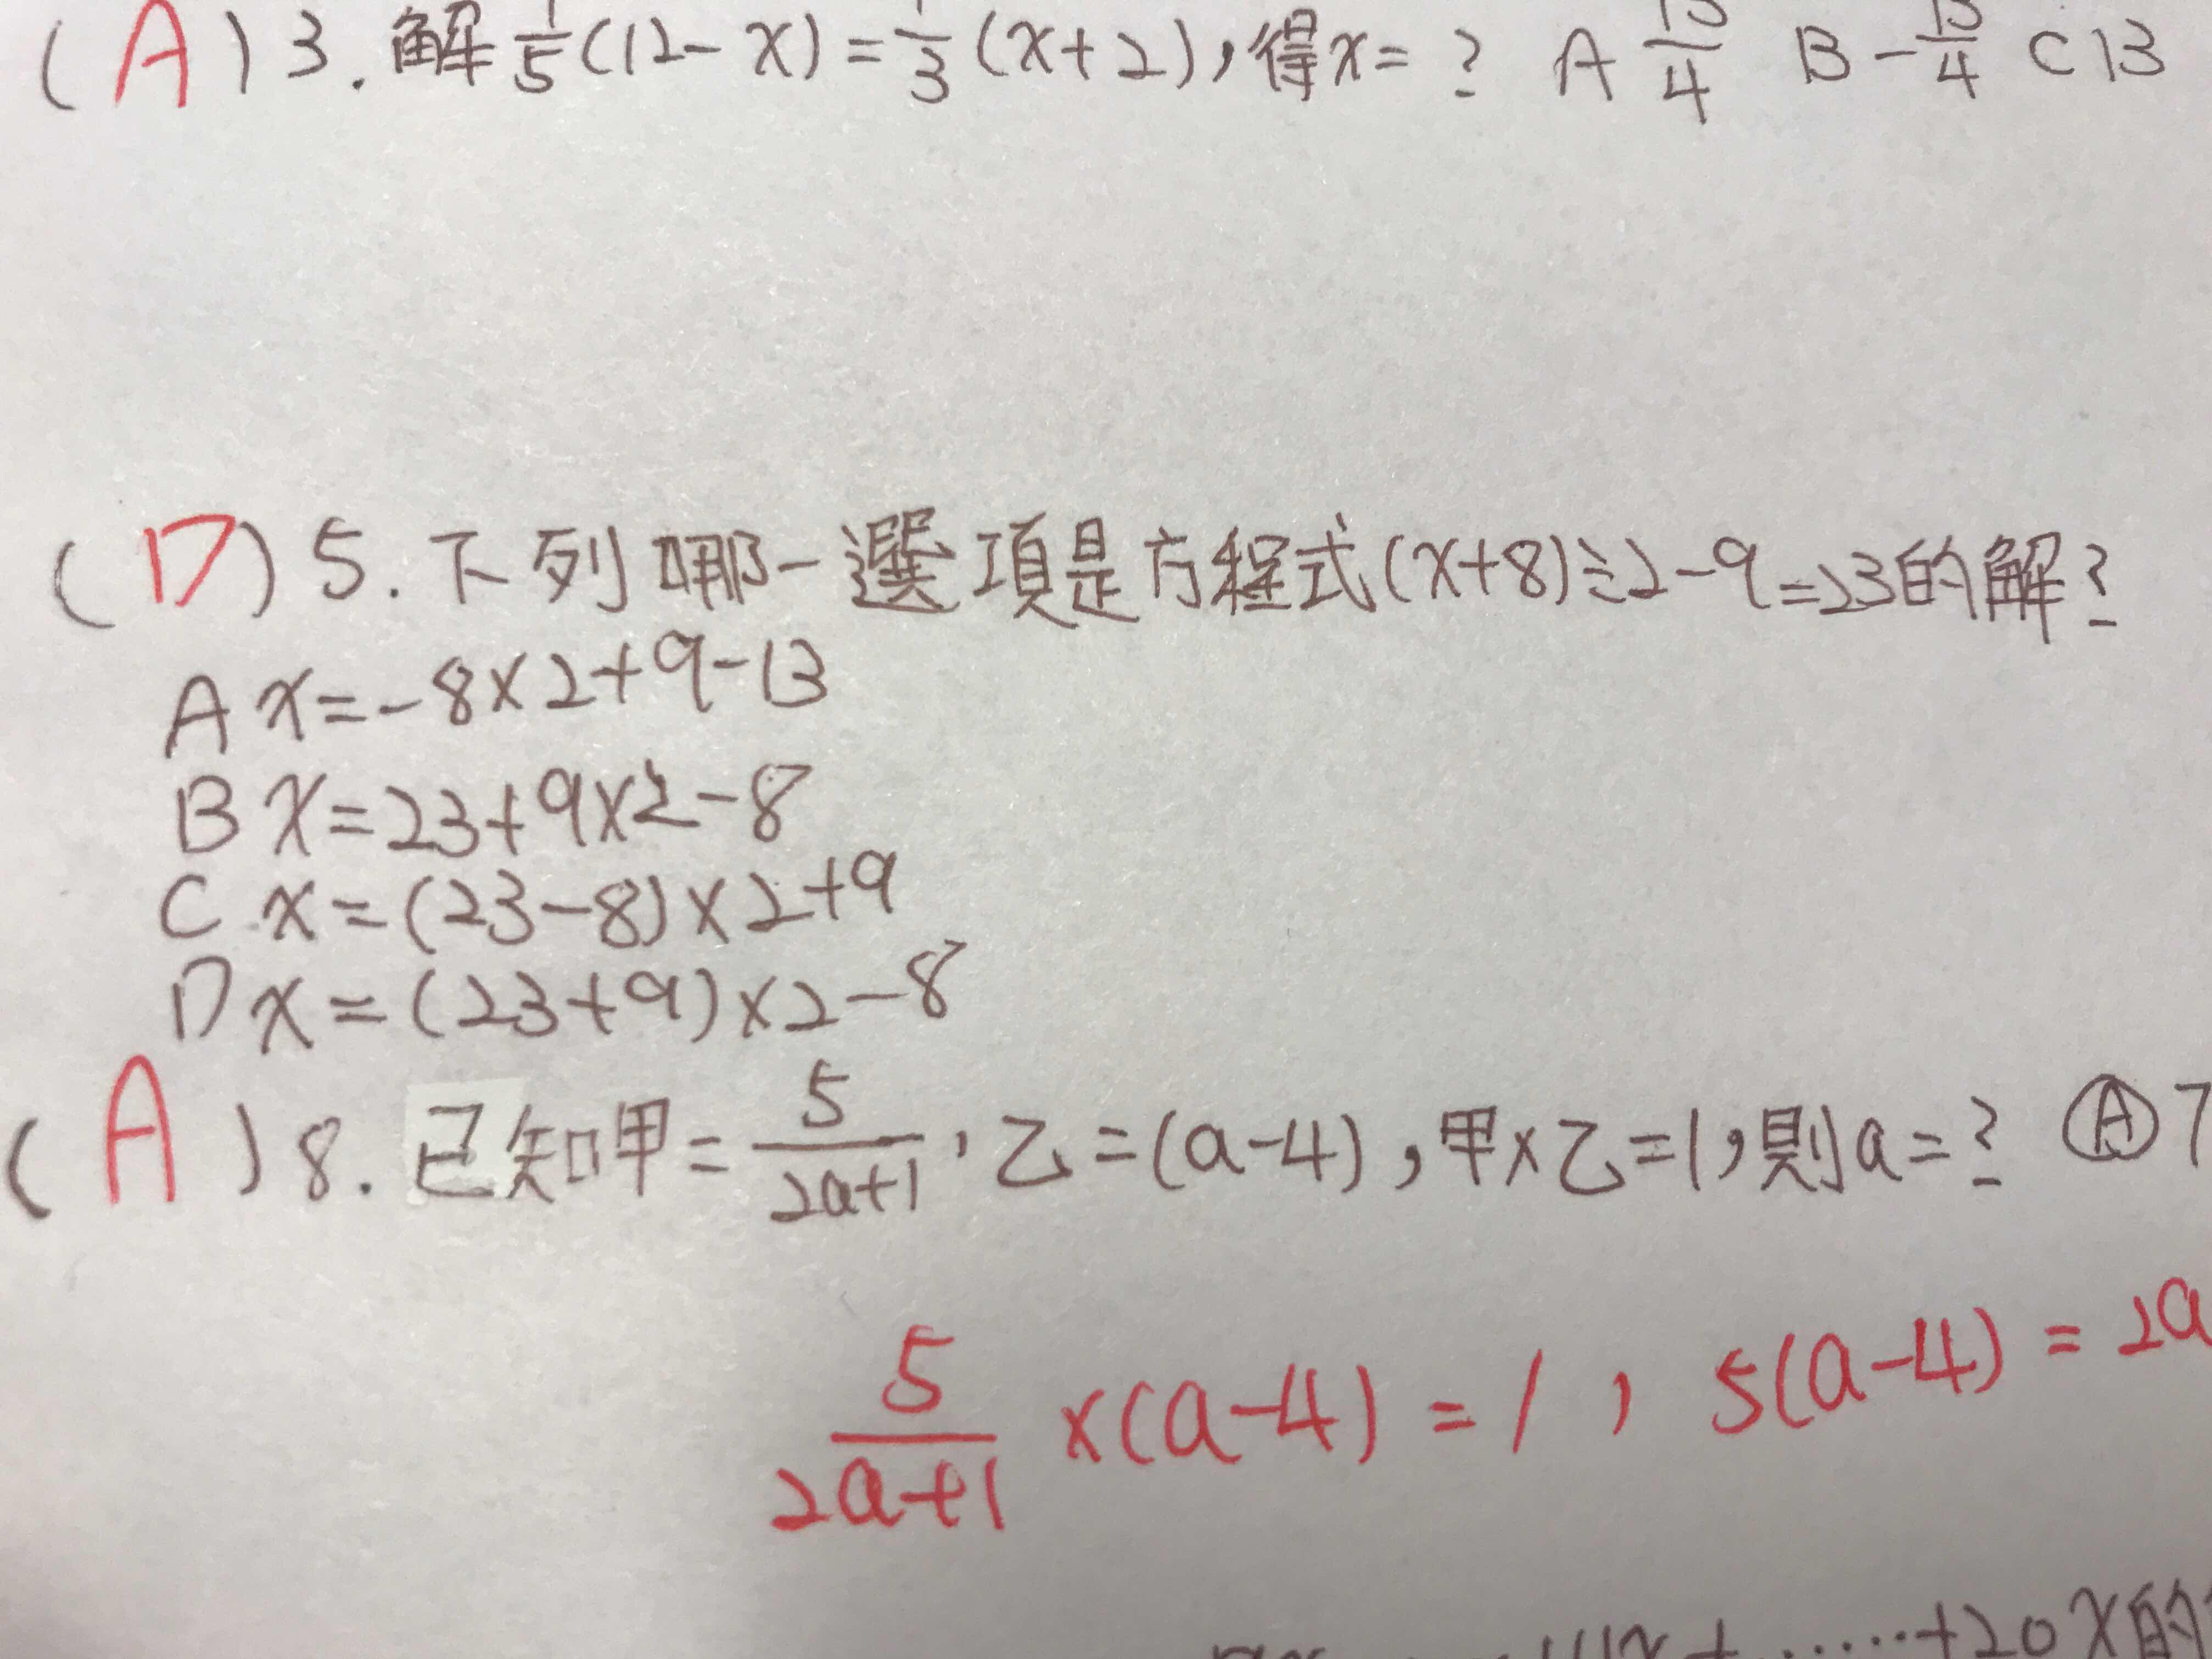 (A)3.解1/5(12-x)=1/3(x+2),得x=? A /4 B -/4 C 13
(D)5.下列哪一選項是方程式(x+8)÷2-9=23的解?
A x=-8×2+9-13
B x=23+9×2-8
C x=(23-8)×2+9
D x=(23+9)×2-8
(A)8.已知甲=5/2a+1,乙=(a-4),甲×乙=1,則a=? Ⓐ7
5/2a+1 ×(a-4)=1, 5(a-4)=2a
+20x的